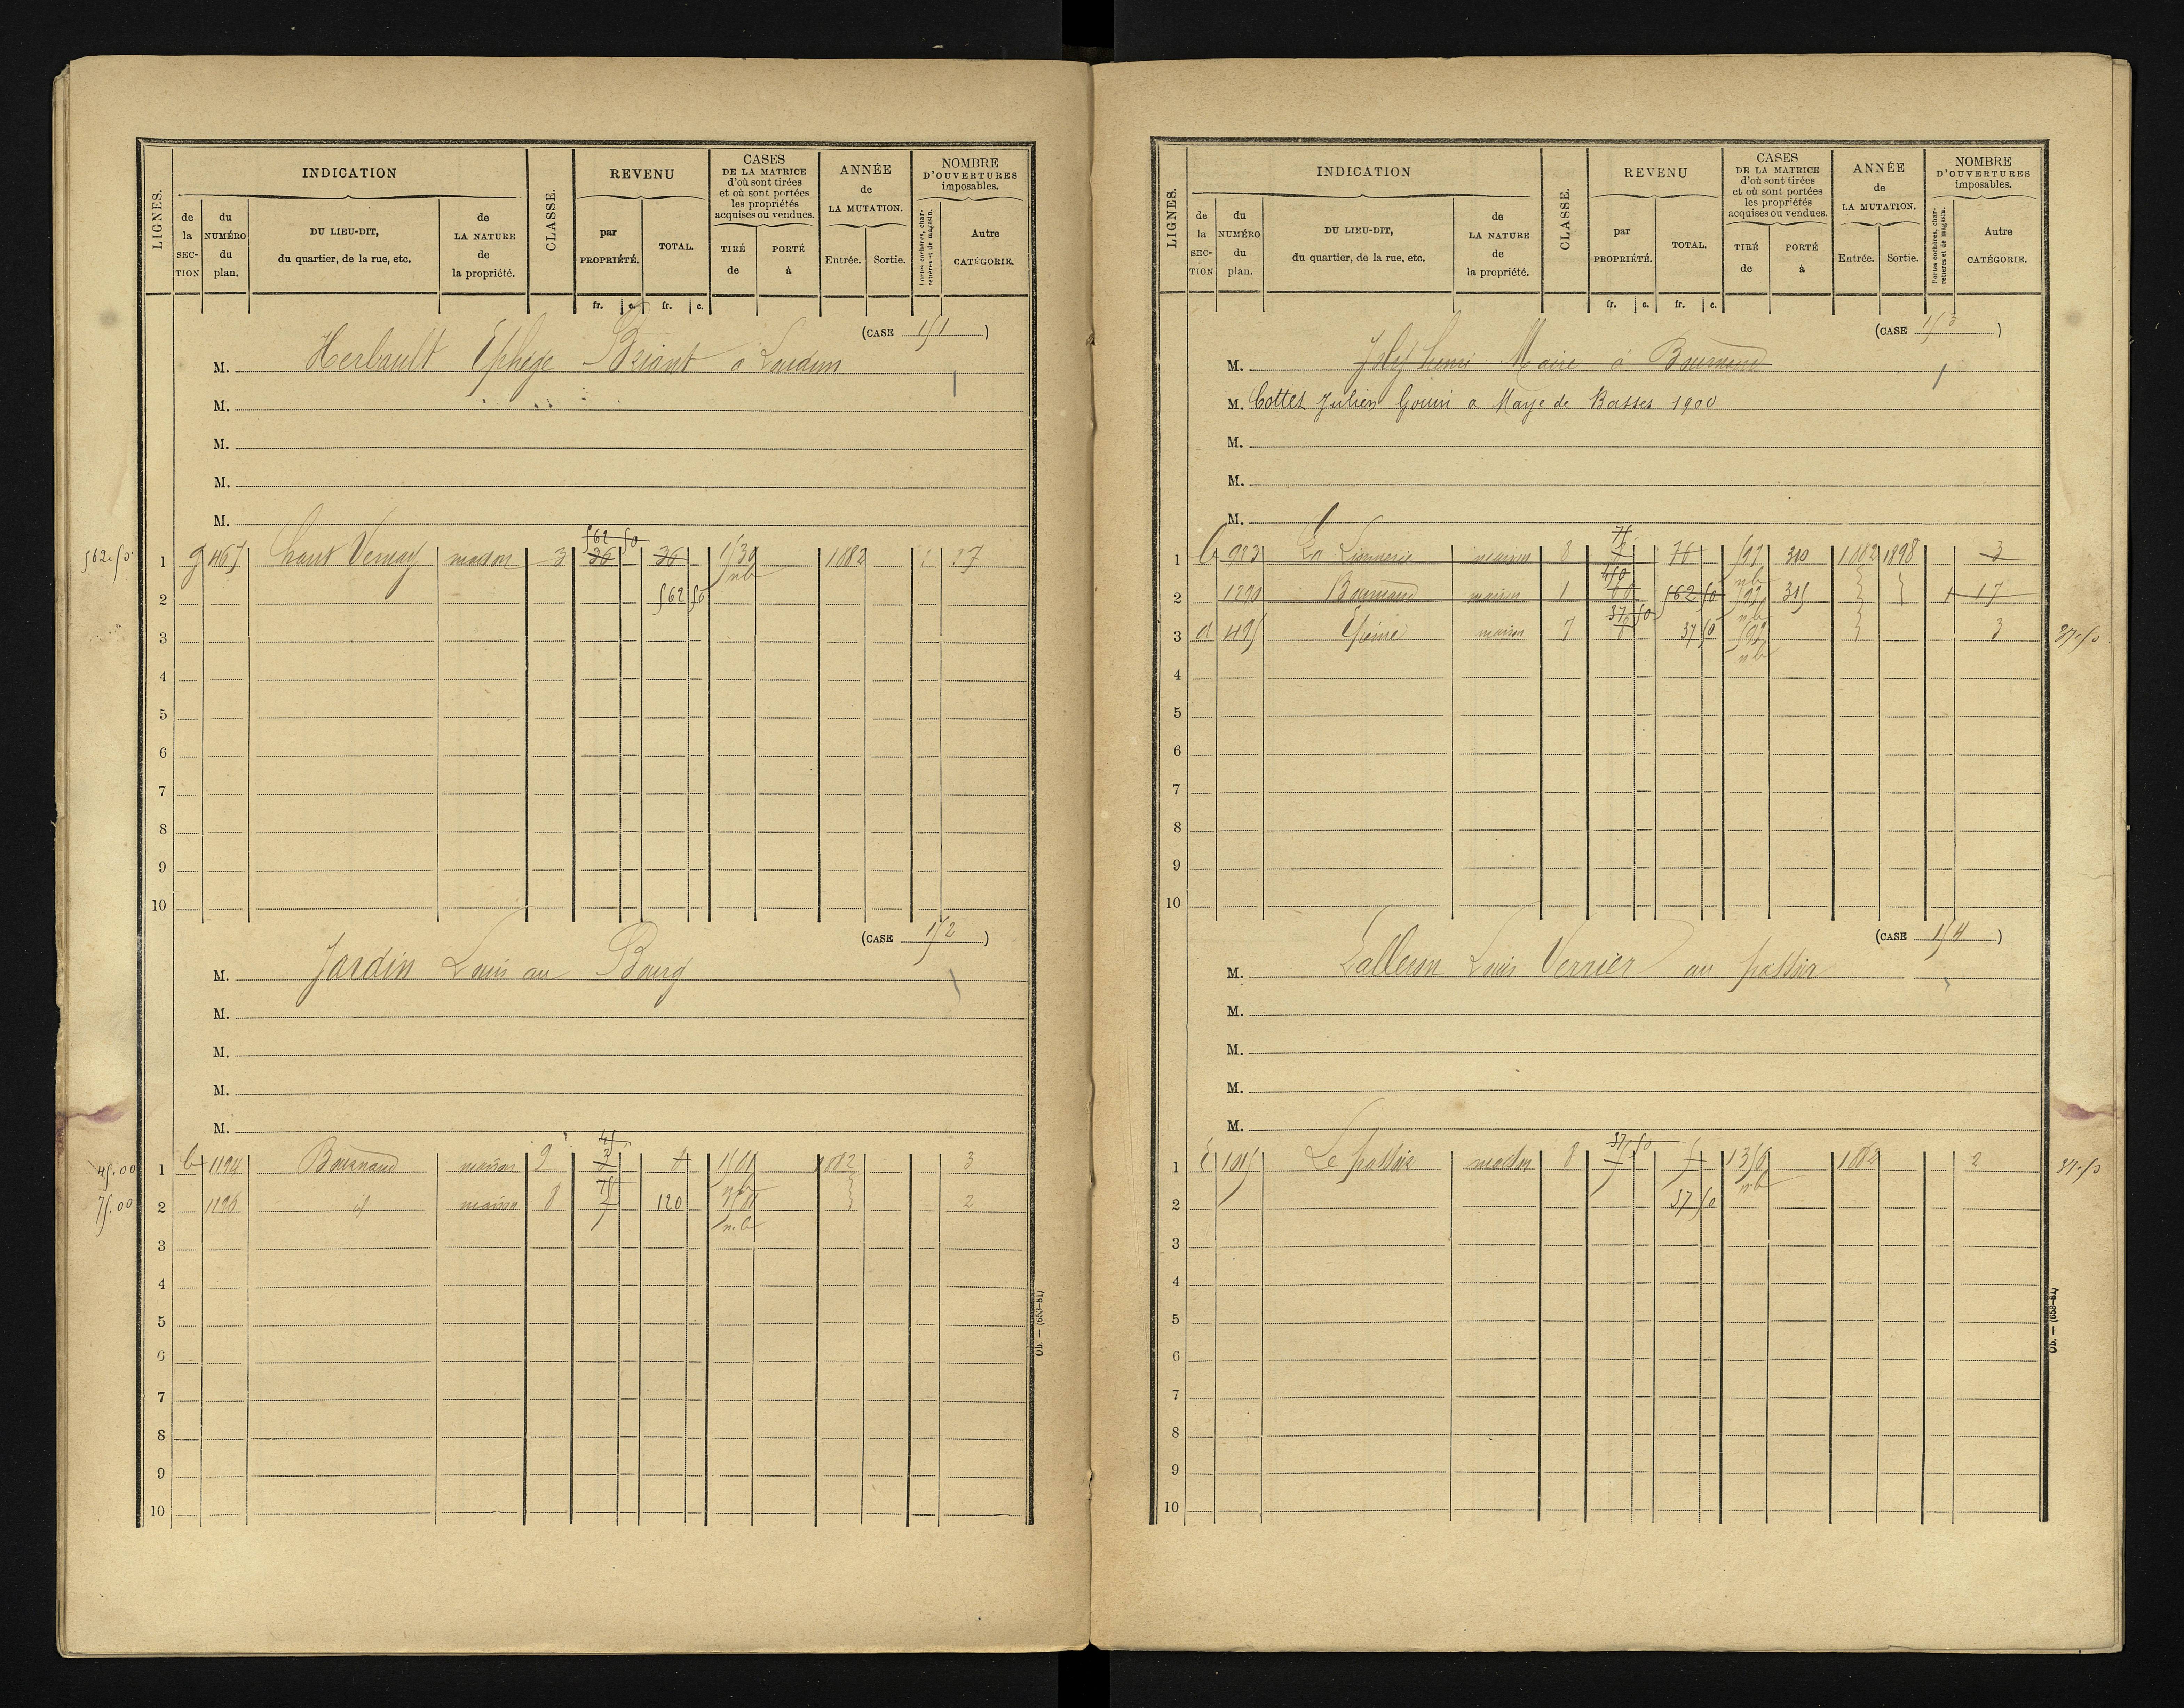 LIGNES.
INDICATION
de la SECTION
du NUMÉRO du plan.
DU LIEU-DIT, du quartier, de la rue, etc.
de LA NATURE de la propriété.
CLASSE.
REVENU
par PROPRIÉTÉ.
TOTAL.
CASES DE LA MATRICE d'où sont tirées et où sont portées les propriétés acquises ou vendues.
TIRÉ de
PORTÉ à
ANNÉE de LA MUTATION.
Entrée.
Sortie.
NOMBRE D'OUVERTURES imposables.
Portes cochères, charretières et de magasin.
Autre CATÉGORIE.
fr. c. fr. c.
(CASE 151)
M. Herbault Briant à Loudun
M.
M.
M.
M.
562 50
562.50 1 g 467 haut Vernay maison 3 36 36 1882 27
2 562 50
3
4
5
6
7
8
9
10
(CASE 152)
M. Jardin Louis au Bourg
M.
M.
M.
M.
45
45.00 1 b 1194 Bournand maison 9 1882 3
75
75.00 2 1196 id maison 8 120 n.b 2
3
4
5
6
7
8
9
10
Ob. — (693-81)
LIGNES.
INDICATION
de la SECTION
du NUMÉRO du plan.
DU LIEU-DIT, du quartier, de la rue, etc.
de LA NATURE de la propriété.
CLASSE.
REVENU
par PROPRIÉTÉ.
TOTAL.
CASES DE LA MATRICE d'où sont tirées et où sont portées les propriétés acquises ou vendues.
TIRÉ de
PORTÉ à
ANNÉE de LA MUTATION.
Entrée.
Sortie.
NOMBRE D'OUVERTURES imposables.
Portes cochères, charretières et de magasin.
Autre CATÉGORIE.
fr. c. fr. c.
(CASE 153)
M. Henri Maire à Bournand
M. Cottet Julien Gouin a Maye de Basses 1900
M.
M.
M.
75
1 983 La maison 8 597 nb 1882 1898 3
450
2 1290 Bournand maison 1 562 50 597 nb 1 17
37 50
3 d 495 maison 7 37 50 597 nb 3 37.50
4
5
6
7
8
9
10
(CASE 154)
M. Louis Verrier au
M.
M.
M.
M.
37 50
1 1015 Le maison 8 nb 1882 2 37.50
2 37 50
3
4
5
6
7
8
9
10
Ob. — (693-81)